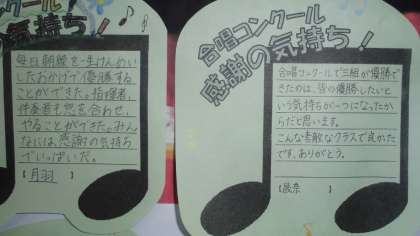 合唱コンクール
感謝の気持ち!
毎日朝練を一生けんめい
したおかげで優勝する
ことができた。指揮者、
伴奏者も息を合わせ、
やることができた。みん
なには、感謝の気持ち
でいっぱいだ。
【月羽】
合唱コンクール
感謝の気持ち!
合唱コンクールで三組が優勝で
きたのは、皆の優勝したいと
いう気持ちが一つになったか
らだと思います。
こんな素敵なクラスで良かった
です。ありがとう。